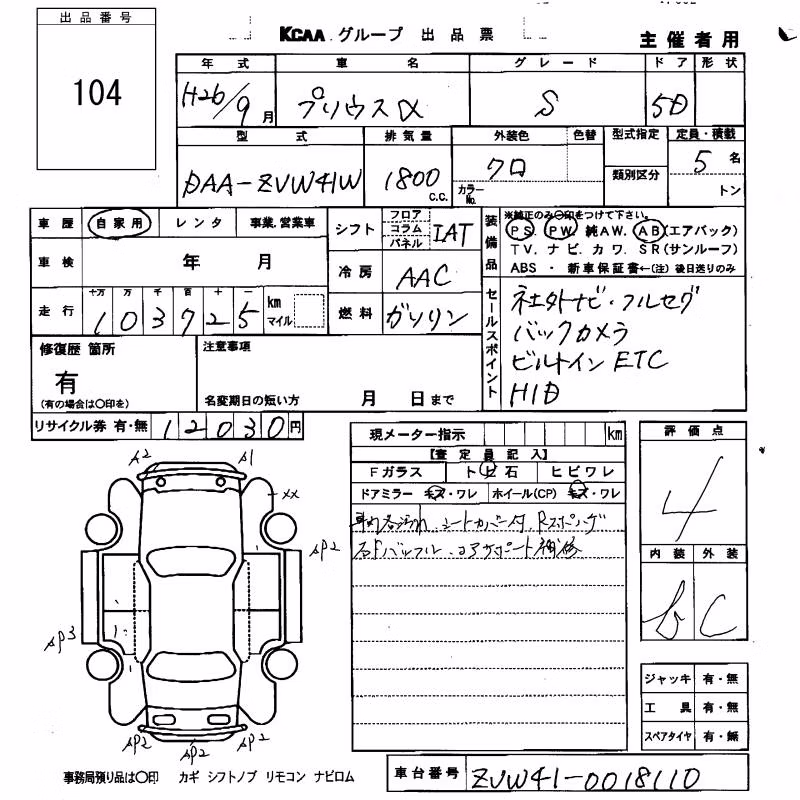 出品番号
104
KCAA グループ 出品票
主催者用
年式 車名 グレード ドア 形状
H26/9月 プリウスα S 5D
型式 排気量 外装色 色替 型式指定 定員・積載
DAA-ZVW41W 1800 C.C. クロ カラーNo. 類別区分 5名
トン
車歴 自家用 レンタ 事業.営業車
シフト フロア コラム パネル IAT
装備品 ※純正のみ○印をつけて下さい。
PS. PW 純AW. AB(エアバック)
TV. ナビ. カワ. SR(サンルーフ)
ABS ・ 新車保証書←(注) 後日送りのみ
車検 年 月
冷房 AAC
走行 十万 万 千 百 十 一
103725 km マイル
燃料 ガソリン
セールスポイント
社外ナビ・フルセグ
バックカメラ
ビルトインETC
HID
修復歴 箇所
有
(有の場合は○印を)
注意事項
名変期日の短い方 月 日まで
リサイクル券 有・無 12030円
現メーター指示 km
【査定員記入】
Fガラス トビ石 ヒビワレ
ドアミラー キズ・ワレ ホイール(CP) キズ・ワレ
シートカバー
評価点
4
内装 外装
b C
A2 A1
XX
AP2
AP3
AP2 AP2 AP2
ジャッキ 有・無
工具 有・無
スペアタイヤ 有・無
事務局預り品は○印 カギ シフトノブ リモコン ナビロム
車台番号 ZVW41-0018110